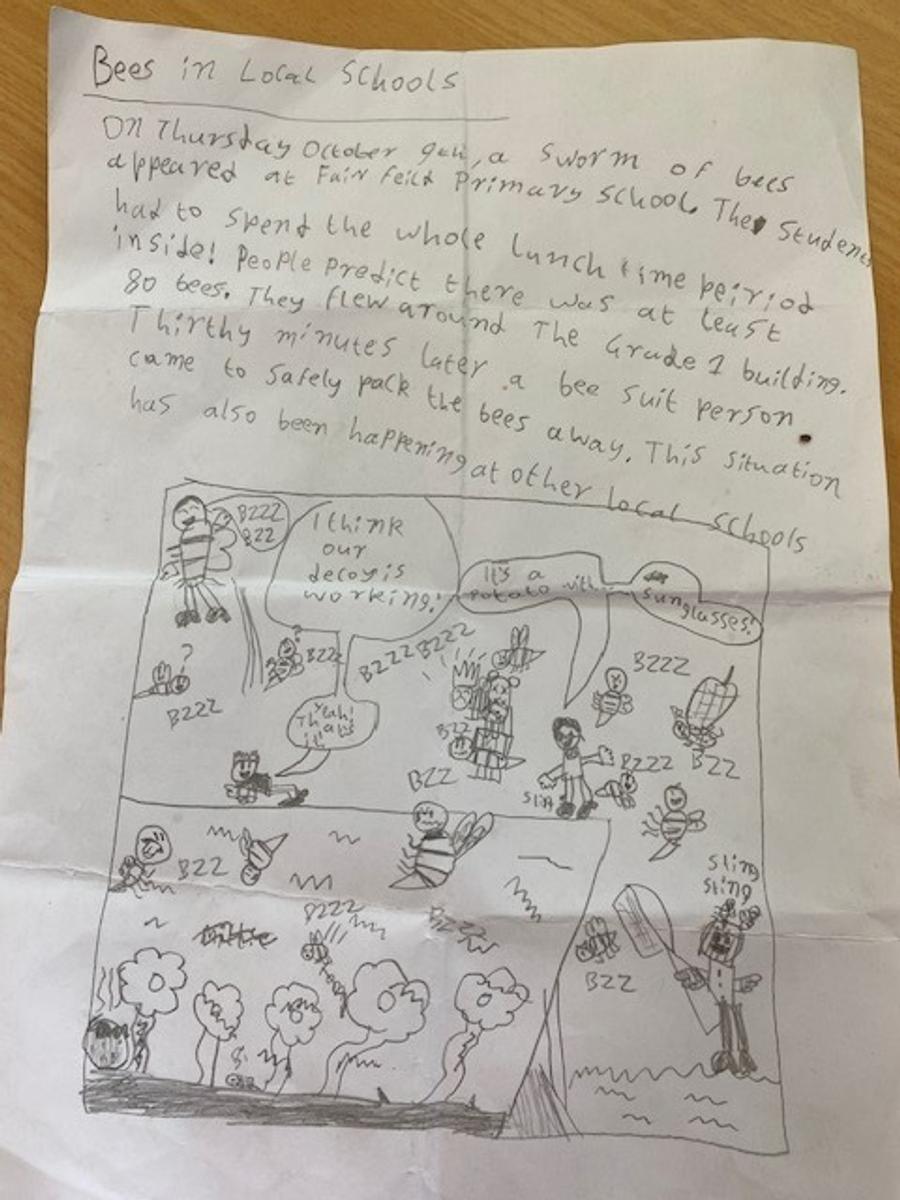 Bees in Local Schools
On Thursday October 9th, a sworm of bees
appeared at Fair feild Primary School. The Students
had to spend the whole lunch time peiriod
inside! People predict there was at least
80 bees. They flew around The Grade 1 building.
Thirthy minutes later a bee suit person
came to safely pack the bees away. This situation
has also been happening at other local schools
BZZZ
BZZ
I think
our
decoy is
working!
It's a
potato with
sunglasses!
?
BZZZ
?
BZZ
BZZZ BZZZ
BZZZ
Yeah!
That's
it!
BZZ
BZZ
BZZZ
BZZ
Sting
Sting
Sting
BZZ
BZZZ
BZZZ
BZZ